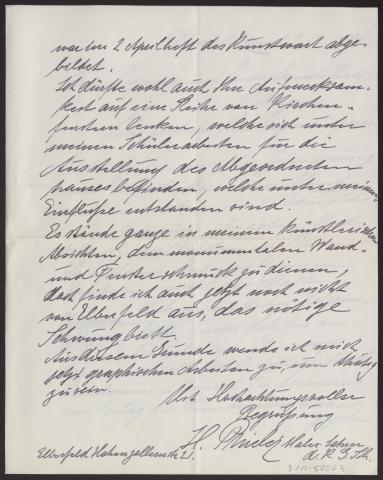 war im 2 Aprilheft des Kunstwart abge-
bildet.
Ich dürfte wohl auch Ihre Aufmerksam-
keit auf eine Reihe von Kirchen-
fenstern lenken, welche sich unter
meinen Schülerarbeiten für die
Ausstellung des Abgeordneten
hauses befinden, welche unter meinem
Einfluße entstanden sind.
Es stände ganze in meinem künstlerischen
Absichten, dem monumentalen Wand-
und Fensterschmuck zu dienen,
doch finde ich auch jetzt noch nicht
von Elberfeld aus, das nötige
Schwungbrett.
Aus diesem Grunde wende ich mich
jetzt graphischen Arbeiten zu, um thätig
zu sein.
Mit Hochachtungsvoller
Begrüßung
H.
Elberfeld Hohenzollernstr 21.
d. K. G. Sch.